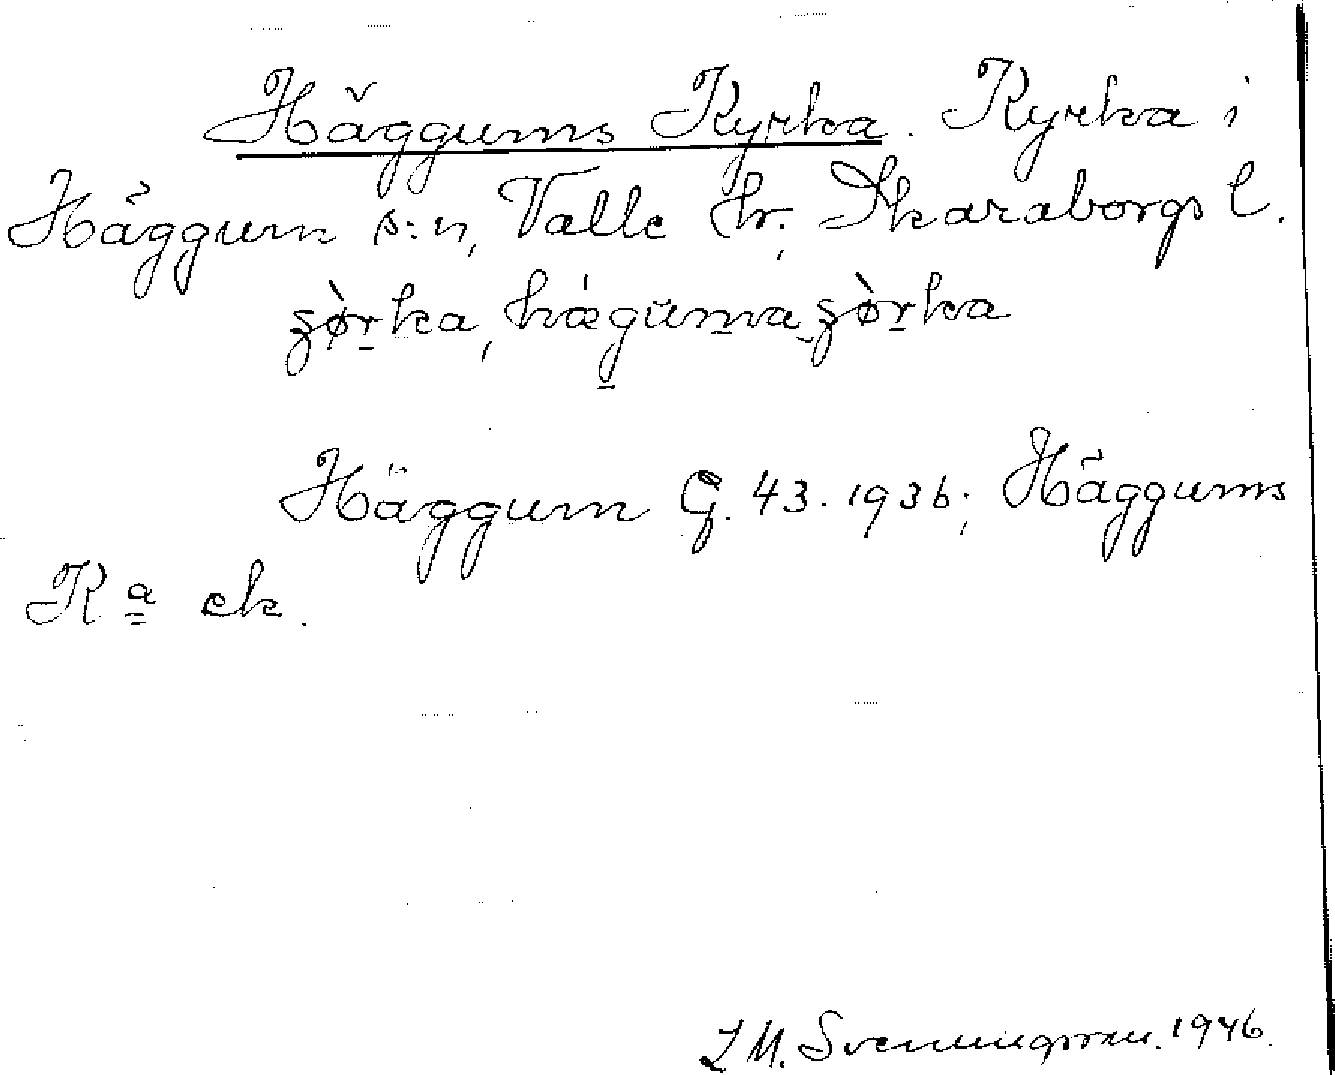 Häggums Kyrka. Kyrka i
Häggum s:n, Valle hr., Skaraborgs l.
ʂø̀rka, hæ̀guma ʂø̀rka
Häggum G. 43. 1936; Häggums
Kª ek.
I M. Svenningsson. 1946.